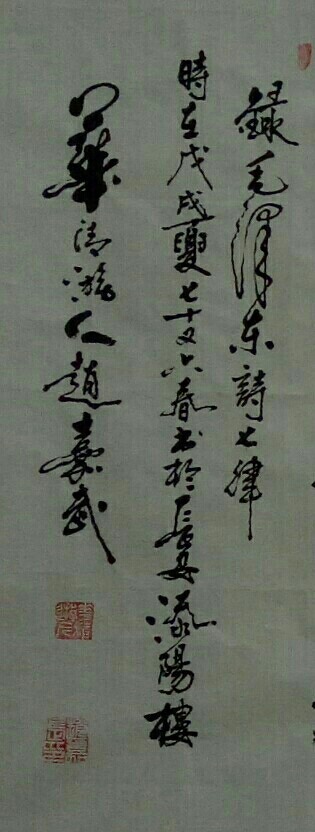 錄毛澤東詩七律
時在戊戌夏七十又六春書於長安漾陽樓
華清逸人趙嘉武